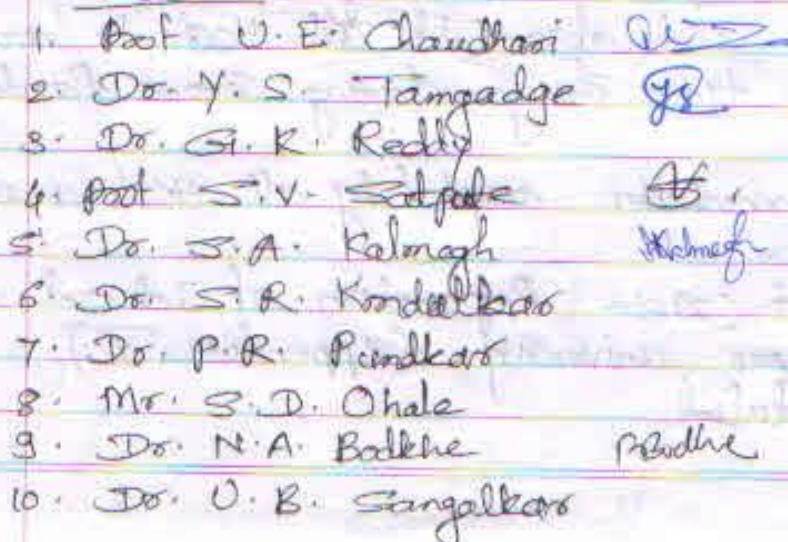 1. Prof U. E. Chaudhari
2. Dr. Y. S. Tamgadge
3. Dr. G. K. Reddy
4. Prof S. V. Satpute
5. Dr. S. A. Kalmegh
6. Dr. S. R. Kondulkar
7. Dr. P. R. Pundkar
8. Mr. S. D. Ohale
9. Dr. N. A. Bodkhe
10. Dr. U. B. Sangalkar